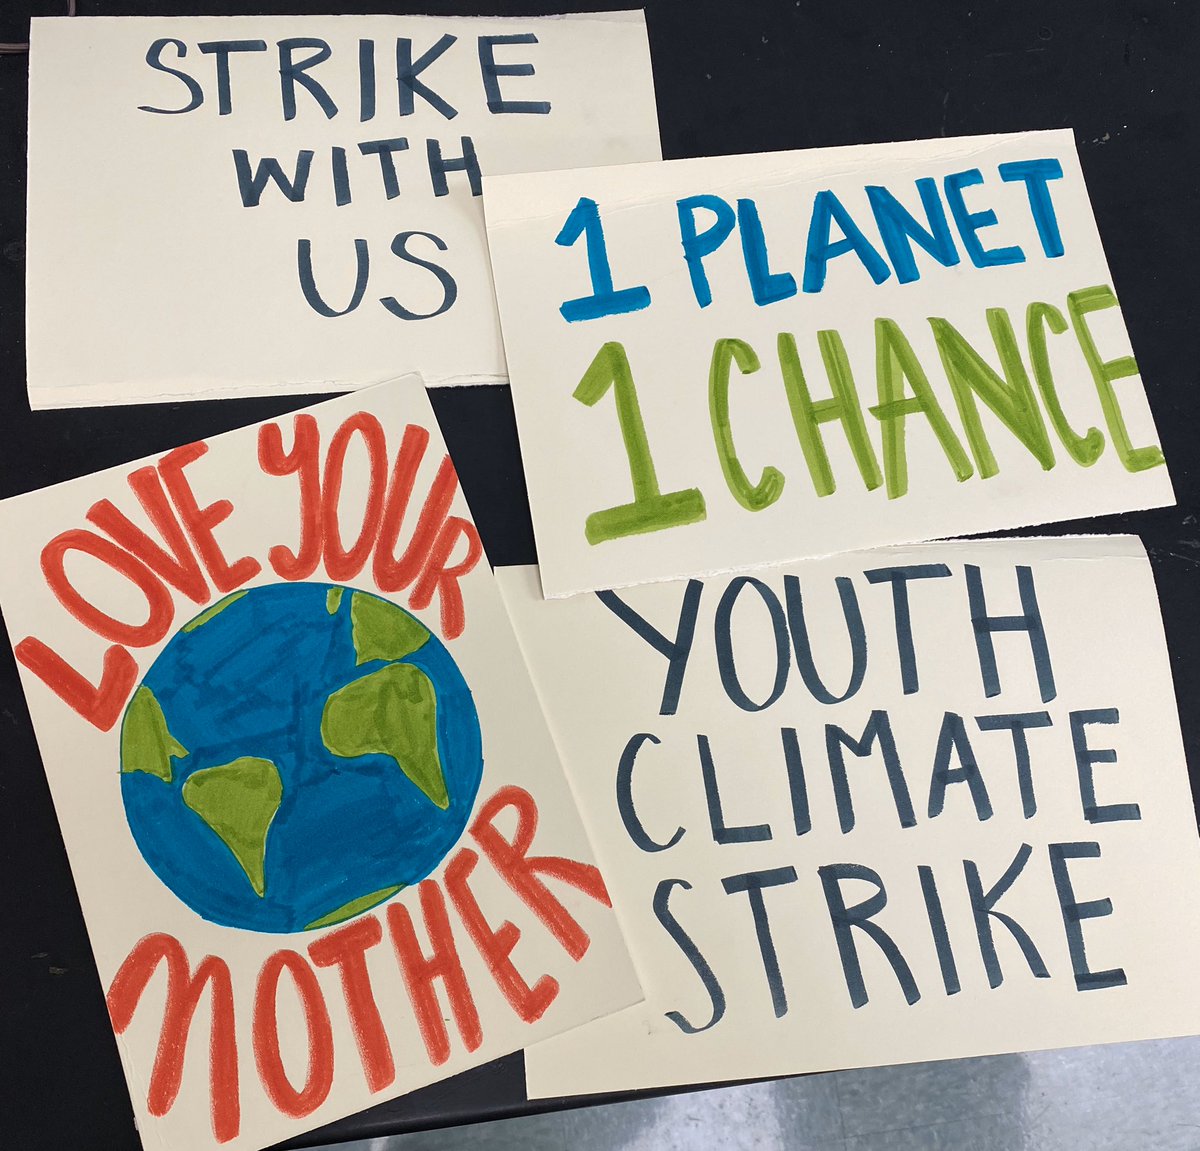 STRIKE
WITH
US
1 PLANET
1 CHANCE
LOVE YOUR
MOTHER
YOUTH
CLIMATE
STRIKE